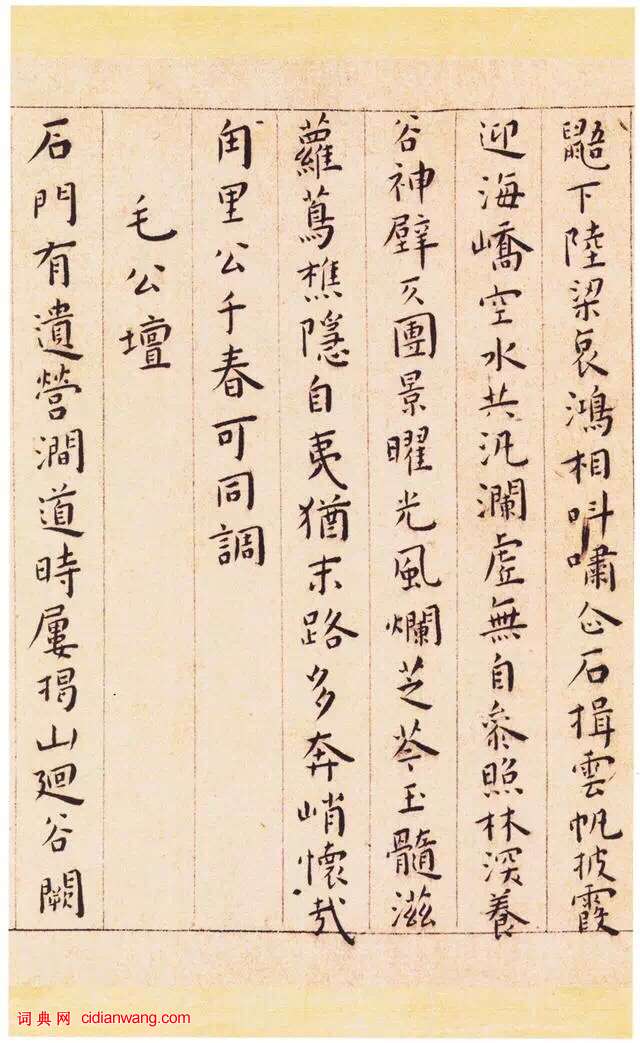 鼯下陸梁哀鴻相呌嘯仚石揖雲帆披霞
迎海嶠空水共汎瀾虛無自叅照林深養
谷神壁仄團景曜光風爛芝苓玉髓滋
蘿蔦樵隱自夷猶末路多奔峭懷哉
甪里公千春可同調
毛公壇
石門有遺營澗道時屢揭山廻谷闕
词典网 cidianwang.com